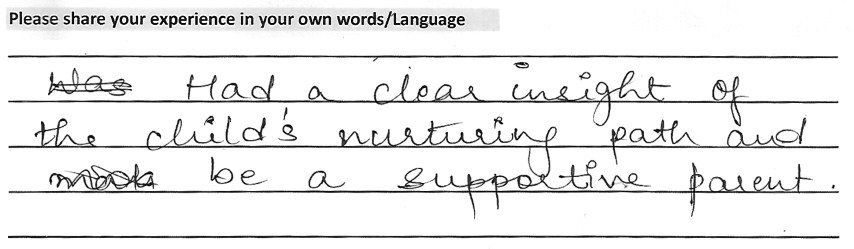 Please share your experience in your own words/Language
Was Had a clear insight of
the child's nurturing path and
be a supportive parent.